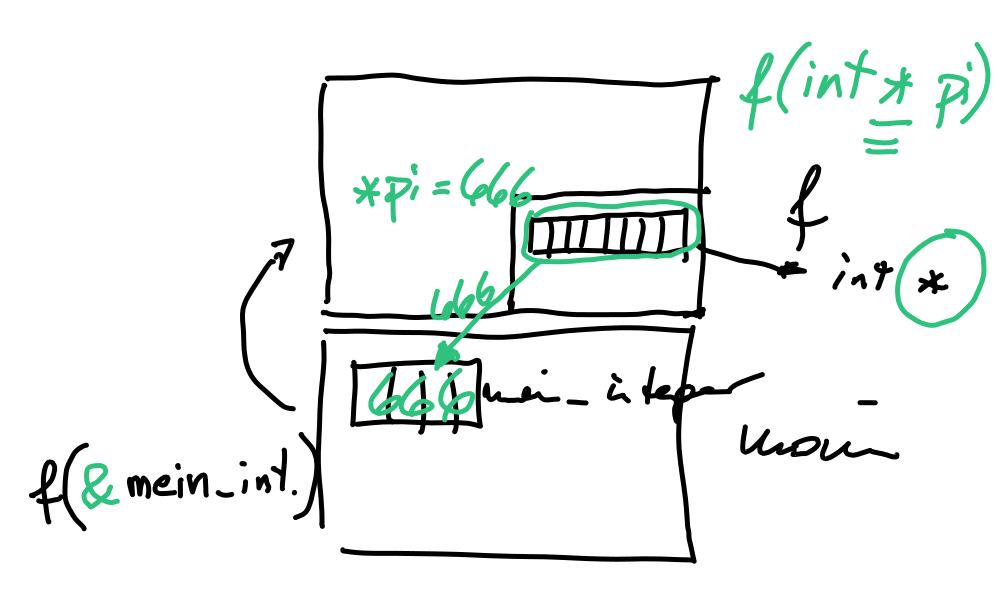 f(int * pi)
*pi = 666
f
int *
666
666 mein_integer
main
f(&mein_int.)